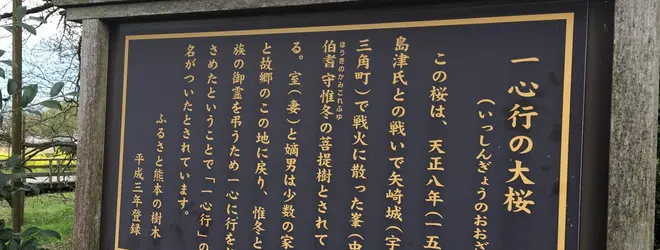 一心行の大桜
(いっしんぎょうのおお
この桜は、天正八年(一五
島津氏との戦いで矢崎城(宇
三角町)で戦火に散った峯(中
ほうきのかみこれふゆ
伯耆守惟冬の菩提樹とされて
る。室(妻)と嫡男は少数の家
と故郷のこの地に戻り、惟冬と
族の御霊を弔うため一心に行を
さめたということで「一心行」の
名がついたとされています。
ふるさと熊本の樹木
平成三年登録